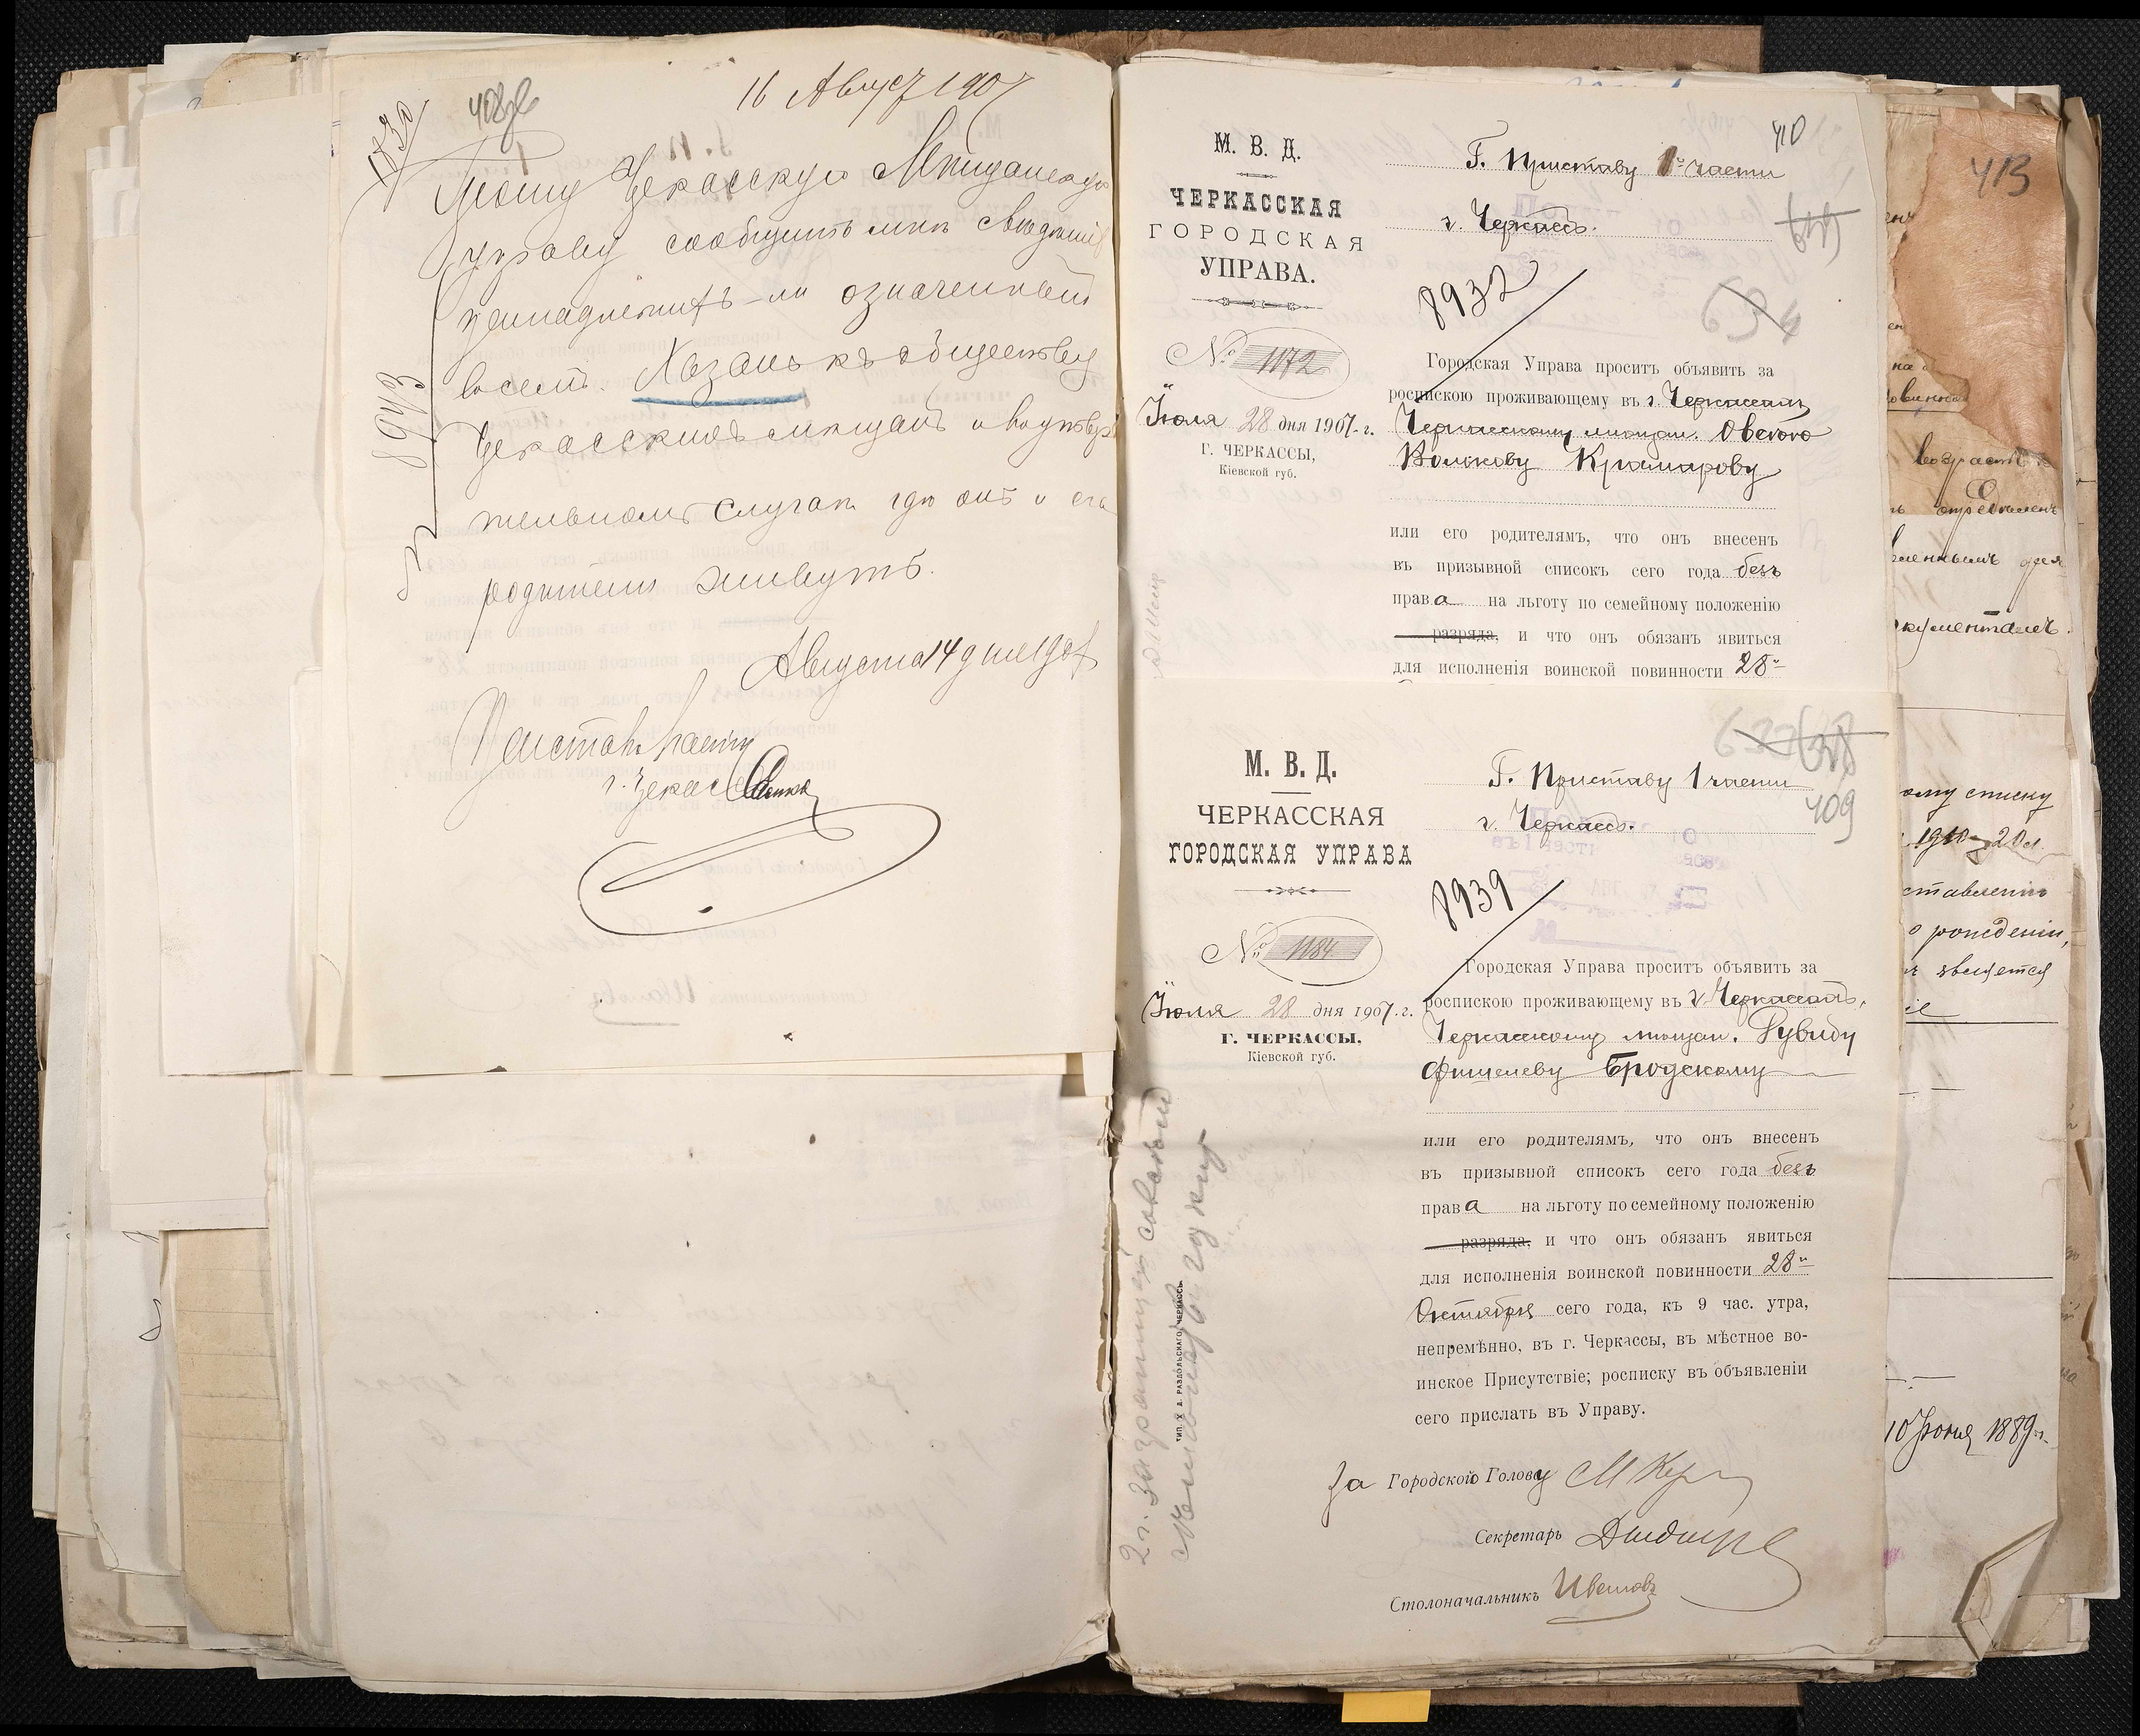 16 Август 1907
1830
408об
Прошу Черкасскую Мещанскую
управу сообщить мне сведенія
принадлежитъ-ли означенный
Хазанъ къ обществу
Черкасскихъ мещанъ и въ утверди
тельномъ случае где онъ и его
родители живутъ.
Августа 14 дня 1907
Приставъ 1 части
г. Черкассъ
№ 8943
М. В. Д.
ЧЕРКАССКАЯ
ГОРОДСКАЯ
УПРАВА.
№ 1172
Іюля 28 дня 1907 г.
Г. ЧЕРКАССЫ,
Кіевской губ.
410
Г. Приставу 1й части
г. Черкассъ.
8932
634
Городская Управа проситъ объявить за
роспискою проживающему въ г. Черкассахъ
Черкасскому мещан. Овсею
Волькову Крамарову
или его родителямъ, что онъ внесенъ
въ призывной списокъ сего года безъ
права на льготу по семейному положенію
разряда, и что онъ обязанъ явиться
для исполненія воинской повинности 28го
М. В. Д.
ЧЕРКАССКАЯ
ГОРОДСКАЯ УПРАВА
№ 1184
Іюля 28 дня 1907 г.
Г. ЧЕРКАССЫ,
Кіевской губ.
Г. Приставу 1 части
г. Черкассъ.
409
8939
Городская Управа проситъ объявить за
роспискою проживающему въ г. Черкассахъ,
Черкасскому мещан. Рувиду
Фишелеву Бродскому
или его родителямъ, что онъ внесенъ
въ призывной списокъ сего года безъ
права на льготу по семейному положенію
разряда, и что онъ обязанъ явиться
для исполненія воинской повинности 28го
Октября сего года, къ 9 час. утра,
непремѣнно, въ г. Черкассы, въ мѣстное во-
инское Присутствіе; росписку въ объявленіи
сего прислать въ Управу.
За Городского Голову
Секретарь
Столоначальникъ Ивановъ
ТИП. Х А. РАЗДОЛЬСКАГО, ЧЕРКАССЫ.
2 г. заграницей
413
возраст
документамъ.
ому списку
1910 г. 20 л.
ставленію
о рожденіи,
является
10 Іюня 1889 г.